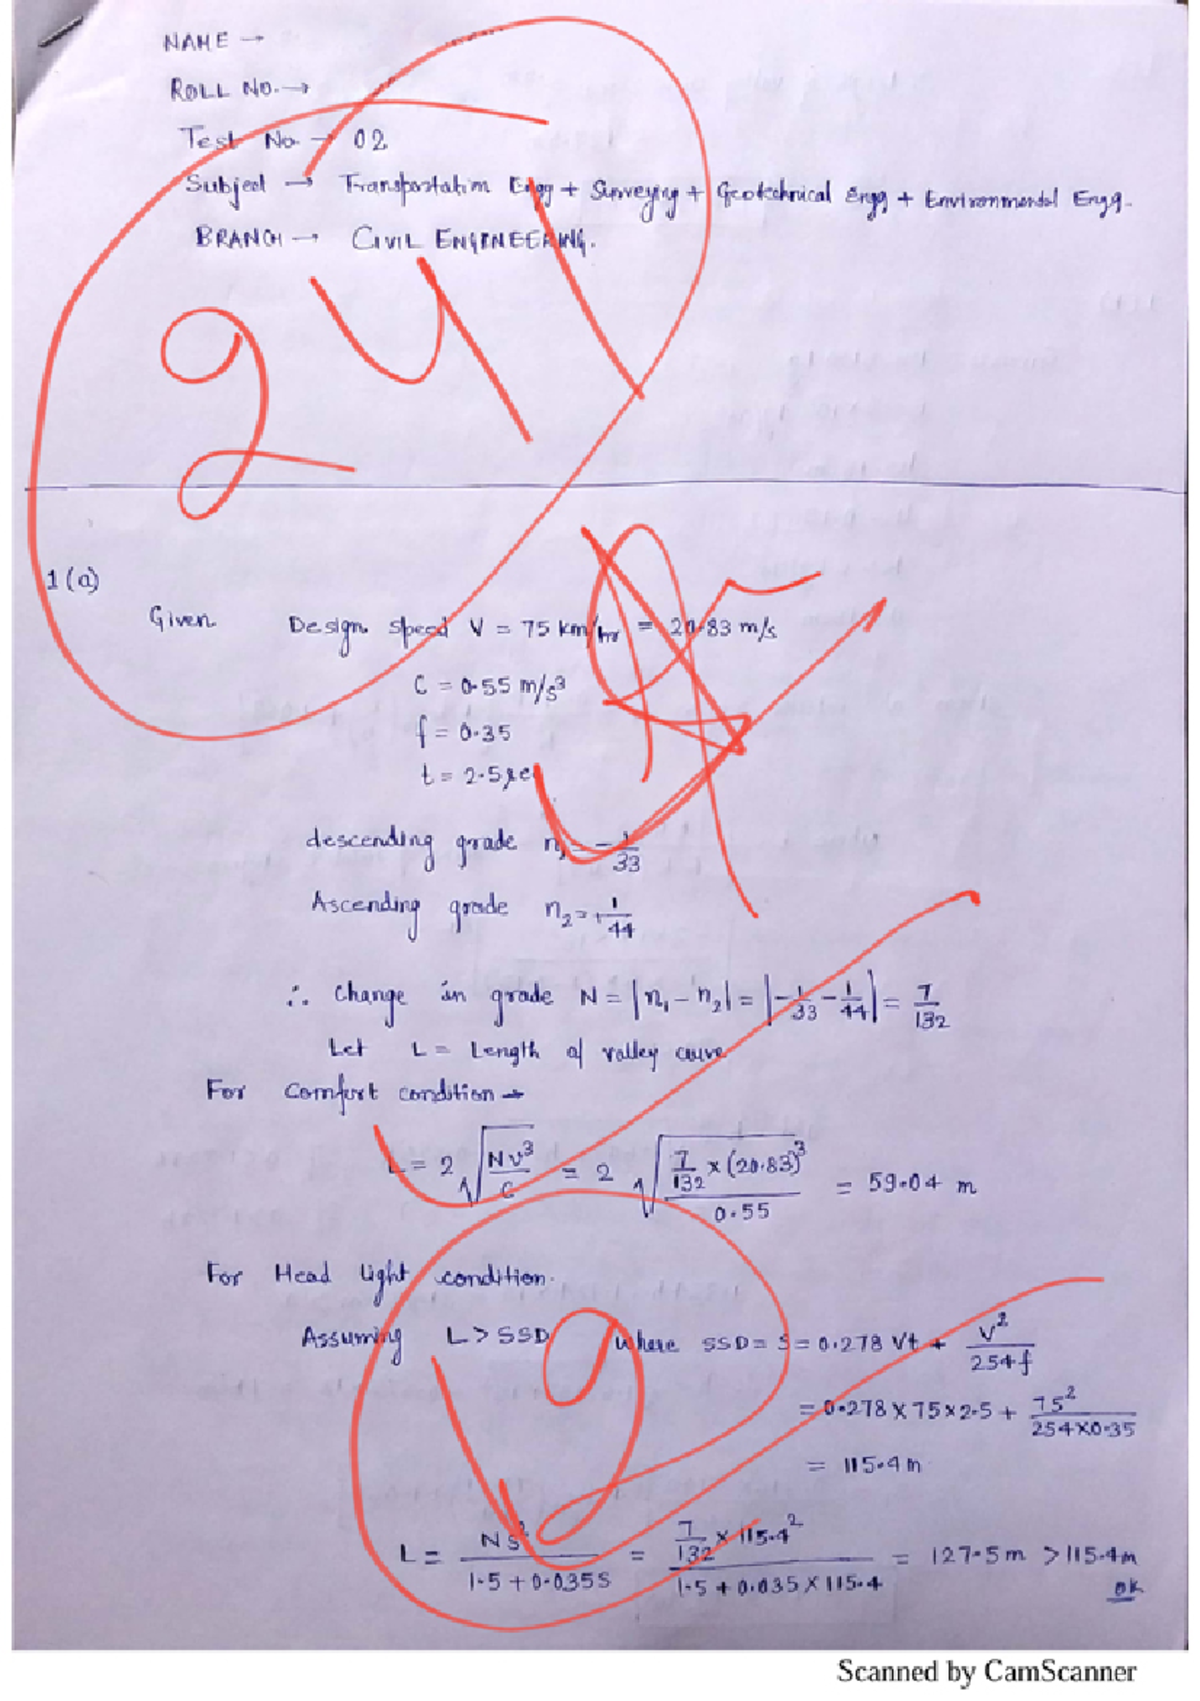 NAME →
ROLL No. →
Test No. → 02
Subject → Transportation Engg + Surveying + Geotechnical Engg + Environmental Engg.
BRANCH → CIVIL ENGINEERING.
241
1(a)
Given Design speed V = 75 km/hr = 20.83 m/s
C = 0.55 m/s³
f = 0.35
t = 2.5 sec
descending grade n₁ = -1/33
Ascending grade n₂ = +1/44
∴ Change in grade N = |n₁ - n₂| = |-1/33 - 1/44| = 7/132
Let L = Length of valley curve
For Comfort condition →
L = 2√(Nv³/C) = 2√((7/132 × (20.83)³)/0.55) = 59.04 m
For Head light condition.
Assuming L > SSD Where SSD = S = 0.278 Vt + V²/254f
= 0.278 × 75 × 2.5 + 75²/(254×0.35)
= 115.4 m
L = NS²/(1.5 + 0.035S) = (7/132 × 115.4²)/(1.5 + 0.035 × 115.4) = 127.5 m > 115.4 m
ok
Scanned by CamScanner